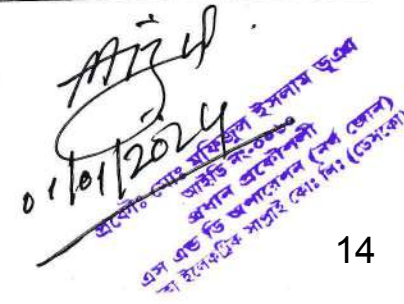 01/01/2024
প্রকৌঃ মোঃ মফিজুল ইসলাম ভূঞা
আইডি নং-
প্রধান প্রকৌশলী
এস এন্ড ডি অপারেশন (নর্থ জোন)
ঢাকা ইলেকট্রিক সাপ্লাই কোঃ লিঃ (ডেসকো)
14